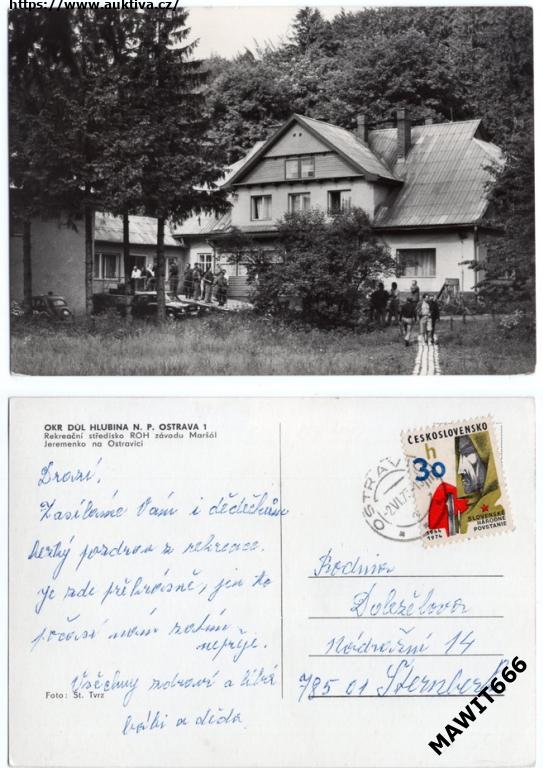 https://www.auktiva.cz/
OKR DŮL HLUBINA N. P. OSTRAVA 1
Rekreační středisko ROH závodu Maršál
Jeremenko na Ostravici
Drazí,
Zasíláme Vám i dědečkům
hezký pozdrav z rekreace.
Je zde překrásně, jen to
počasí nám zatím
nepřeje.
Všechny zdraví a líbá
babi a děda
Foto: St. Tvrz
ČESKOSLOVENSKO
30 h
SLOVENSKÉ
NÁRODNÉ
POVSTANIE
1944
1974
OSTRAV
Rodina
Doležělova
Nádražní 14
785 01 Šternberk
MAWIT666